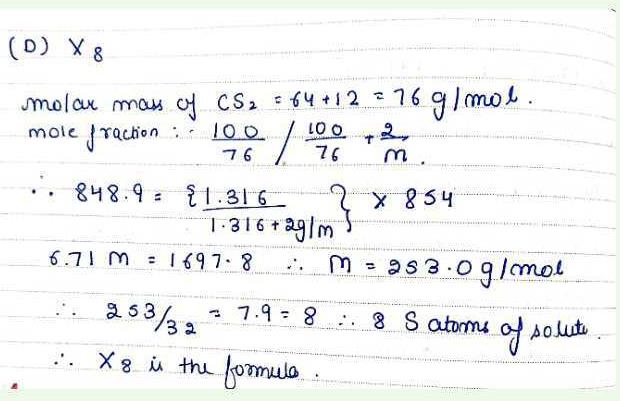 (D) X 8
molar mass of CS2 = 64 + 12 = 76 g/mol.
mole fraction : - 100/76 / 100/76 + 2/m.
∴ 848.9 = {1.316 / 1.316 + 2g/m} × 854
6.71 M = 1697.8 ∴ M = 253.0 g/mol
∴ 253/32 = 7.9 = 8 ∴ 8 S atoms of solute.
∴ X8 is the formula.